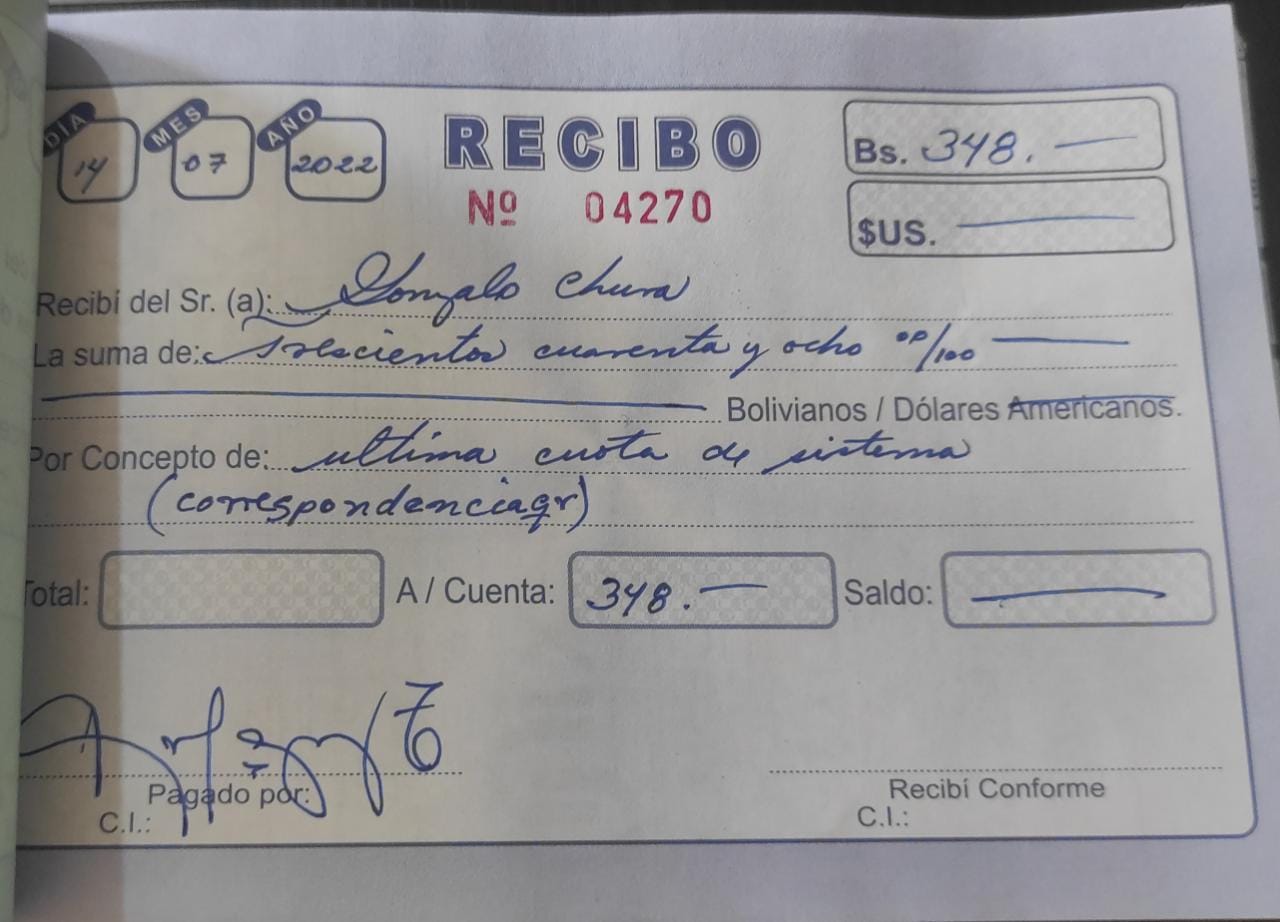 DÍA MES AÑO RECIBO Bs. 348.
14 07 2022
Nº 04270 $US.
Recibí del Sr. (a): Gonzalo Chura
La suma de: Trescientos cuarenta y ocho 00/100
Bolivianos / Dólares Americanos.
Por Concepto de: ultima cuota de sistema
(correspondenciaqr)
Total: A / Cuenta: 348. Saldo:
Pagado por: Recibí Conforme
C.I.: C.I.: